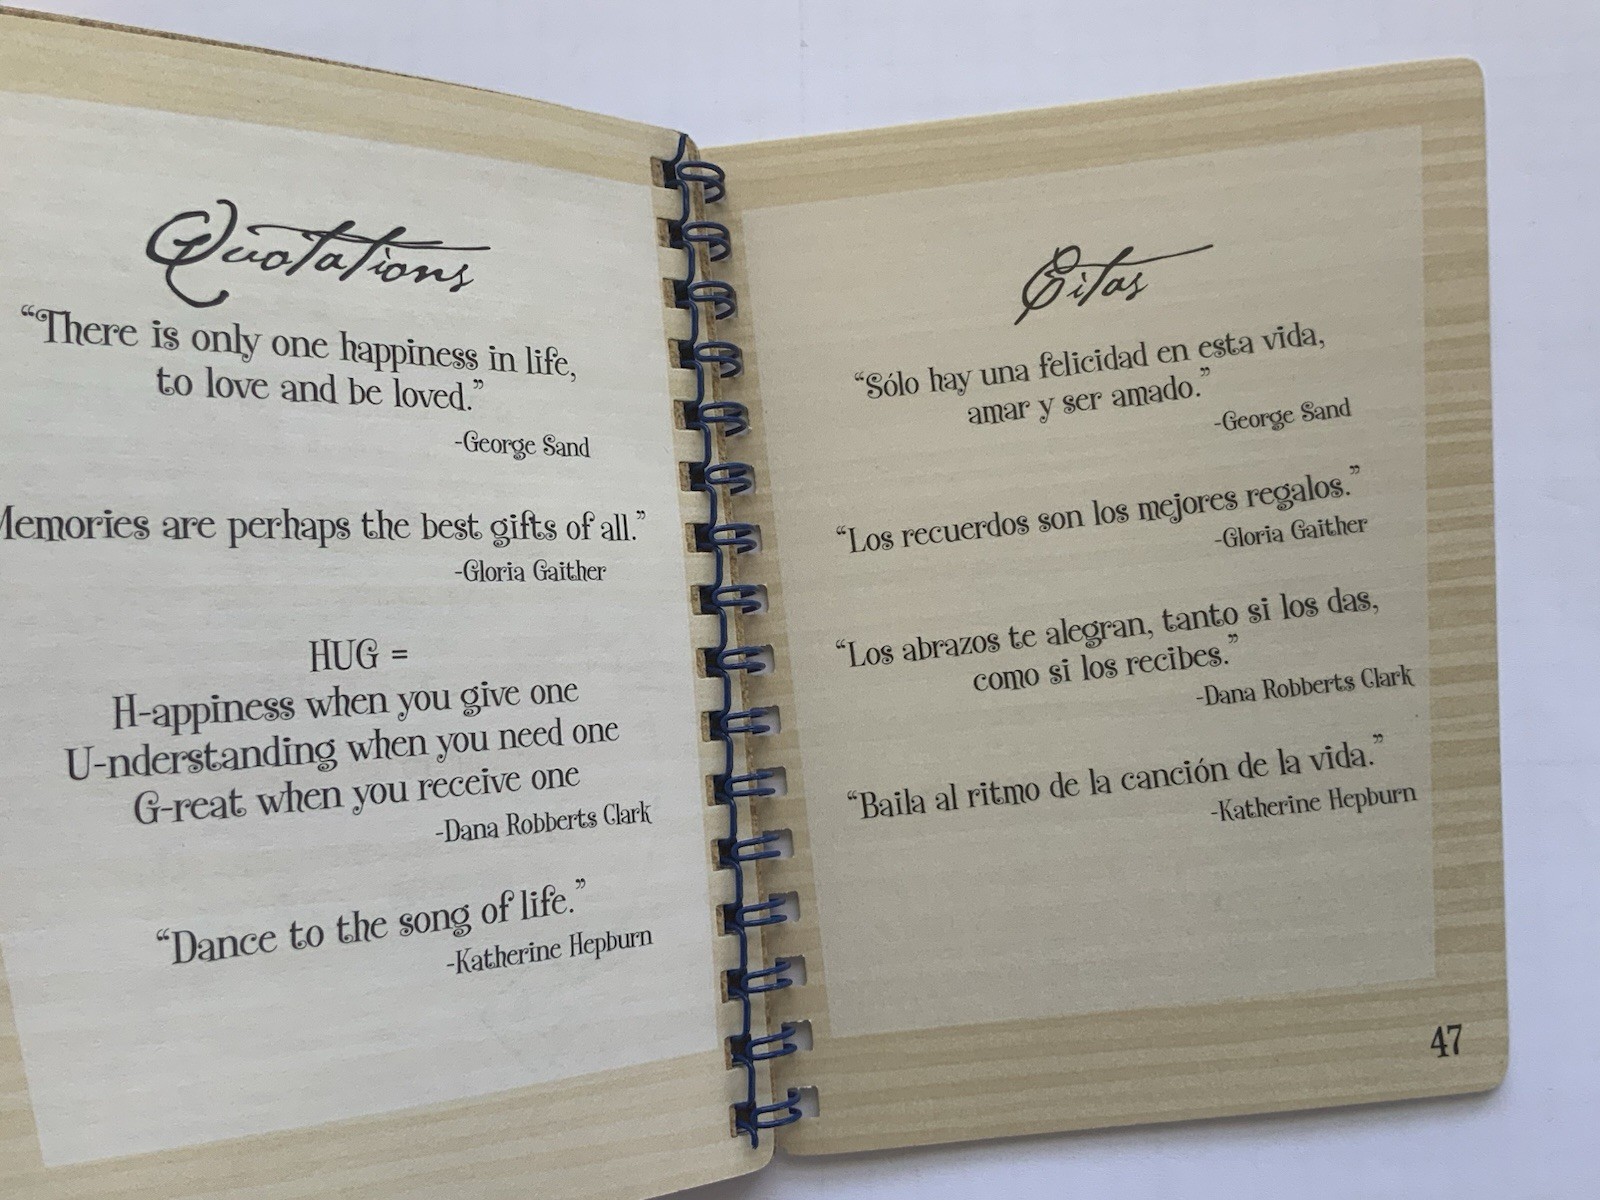 Quotations
“There is only one happiness in life,
to love and be loved.”
-George Sand
Memories are perhaps the best gifts of all.”
-Gloria Gaither
HUG =
H-appiness when you give one
U-nderstanding when you need one
G-reat when you receive one
-Dana Robberts Clark
“Dance to the song of life.”
-Katherine Hepburn
Citas
“Sólo hay una felicidad en esta vida,
amar y ser amado.”
-George Sand
“Los recuerdos son los mejores regalos.”
-Gloria Gaither
“Los abrazos te alegran, tanto si los das,
como si los recibes.”
-Dana Robberts Clark
“Baila al ritmo de la canción de la vida.”
-Katherine Hepburn
47